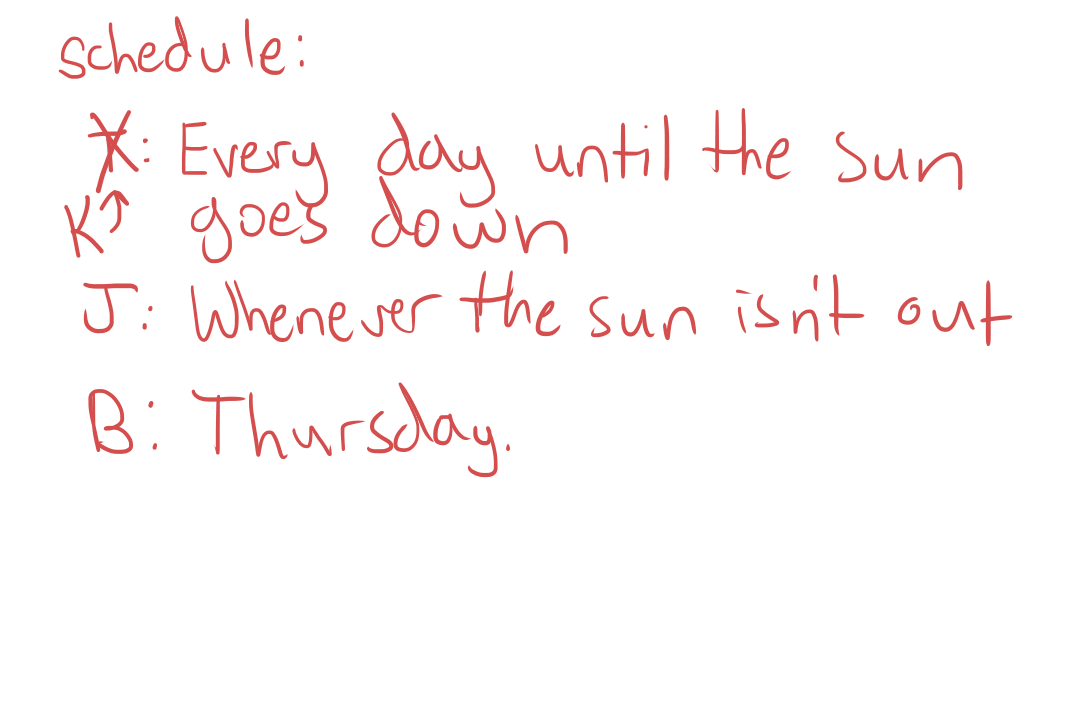 schedule:
T: Every day until the sun
K↑ goes down
J: Whenever the sun isn't out
B: Thursday.